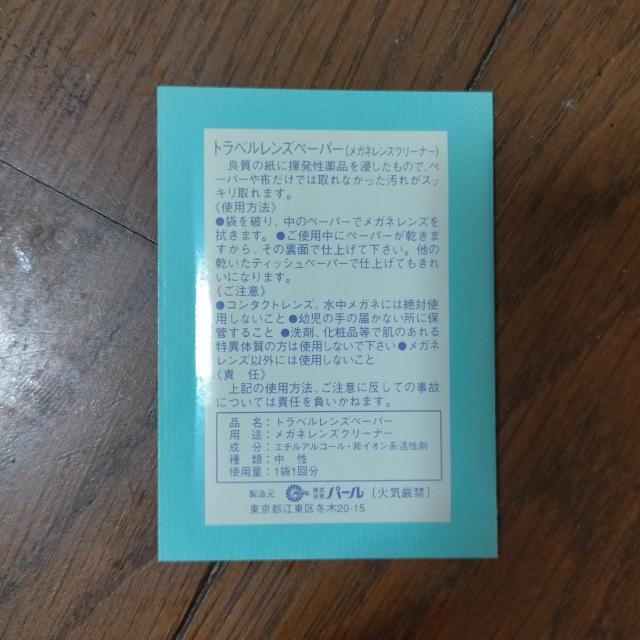 トラベルレンズペーパー(メガネレンズクリーナー)
良質の紙に揮発性薬品を浸したもので、ペ
ーパーや布だけでは取れなかった汚れがスッ
キリ取れます。
《使用方法》
●袋を破り、中のペーパーでメガネレンズを
拭きます。●ご使用中にペーパーが乾きま
すから、その裏面で仕上げて下さい。他の
乾いたティッシュペーパーで仕上げてもきれ
いになります。
《ご注意》
●コンタクトレンズ、水中メガネには絶対使
用しないこと●幼児の手の届かない所に保
管すること●洗剤、化粧品等で肌のあれる
特異体質の方は使用しないで下さい●メガネ
レンズ以外には使用しないこと
《責 任》
上記の使用方法、ご注意に反しての事故
については責任を負いかねます。
品 名：トラベルレンズペーパー
用 途：メガネレンズクリーナー
成 分：エチルアルコール・非イオン系活性剤
種 類：中 性
使用量：1袋1回分
製造元 株式会社 パール 〔火気厳禁〕
東京都江東区冬木20-15